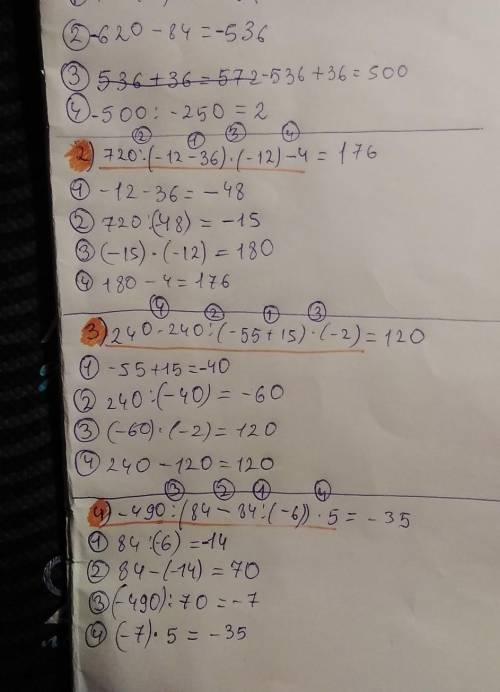 ② -620 - 84 = -536
③ 536 + 36 = 572 -536 + 36 = 500
④ -500 : -250 = 2
② ① ③ ④
2) 720 : (-12 - 36) · (-12) - 4 = 176
① -12 - 36 = -48
② 720 : (-48) = -15
③ (-15) · (-12) = 180
④ 180 - 4 = 176
④ ② ① ③
3) 240 - 240 : (-55 + 15) · (-2) = 120
① -55 + 15 = -40
② 240 : (-40) = -60
③ (-60) · (-2) = 120
④ 240 - 120 = 120
③ ② ① ④
4) -490 : (84 - 84 : (-6)) · 5 = -35
① 84 : (-6) = -14
② 84 - (-14) = 70
③ (-490) : 70 = -7
④ (-7) · 5 = -35